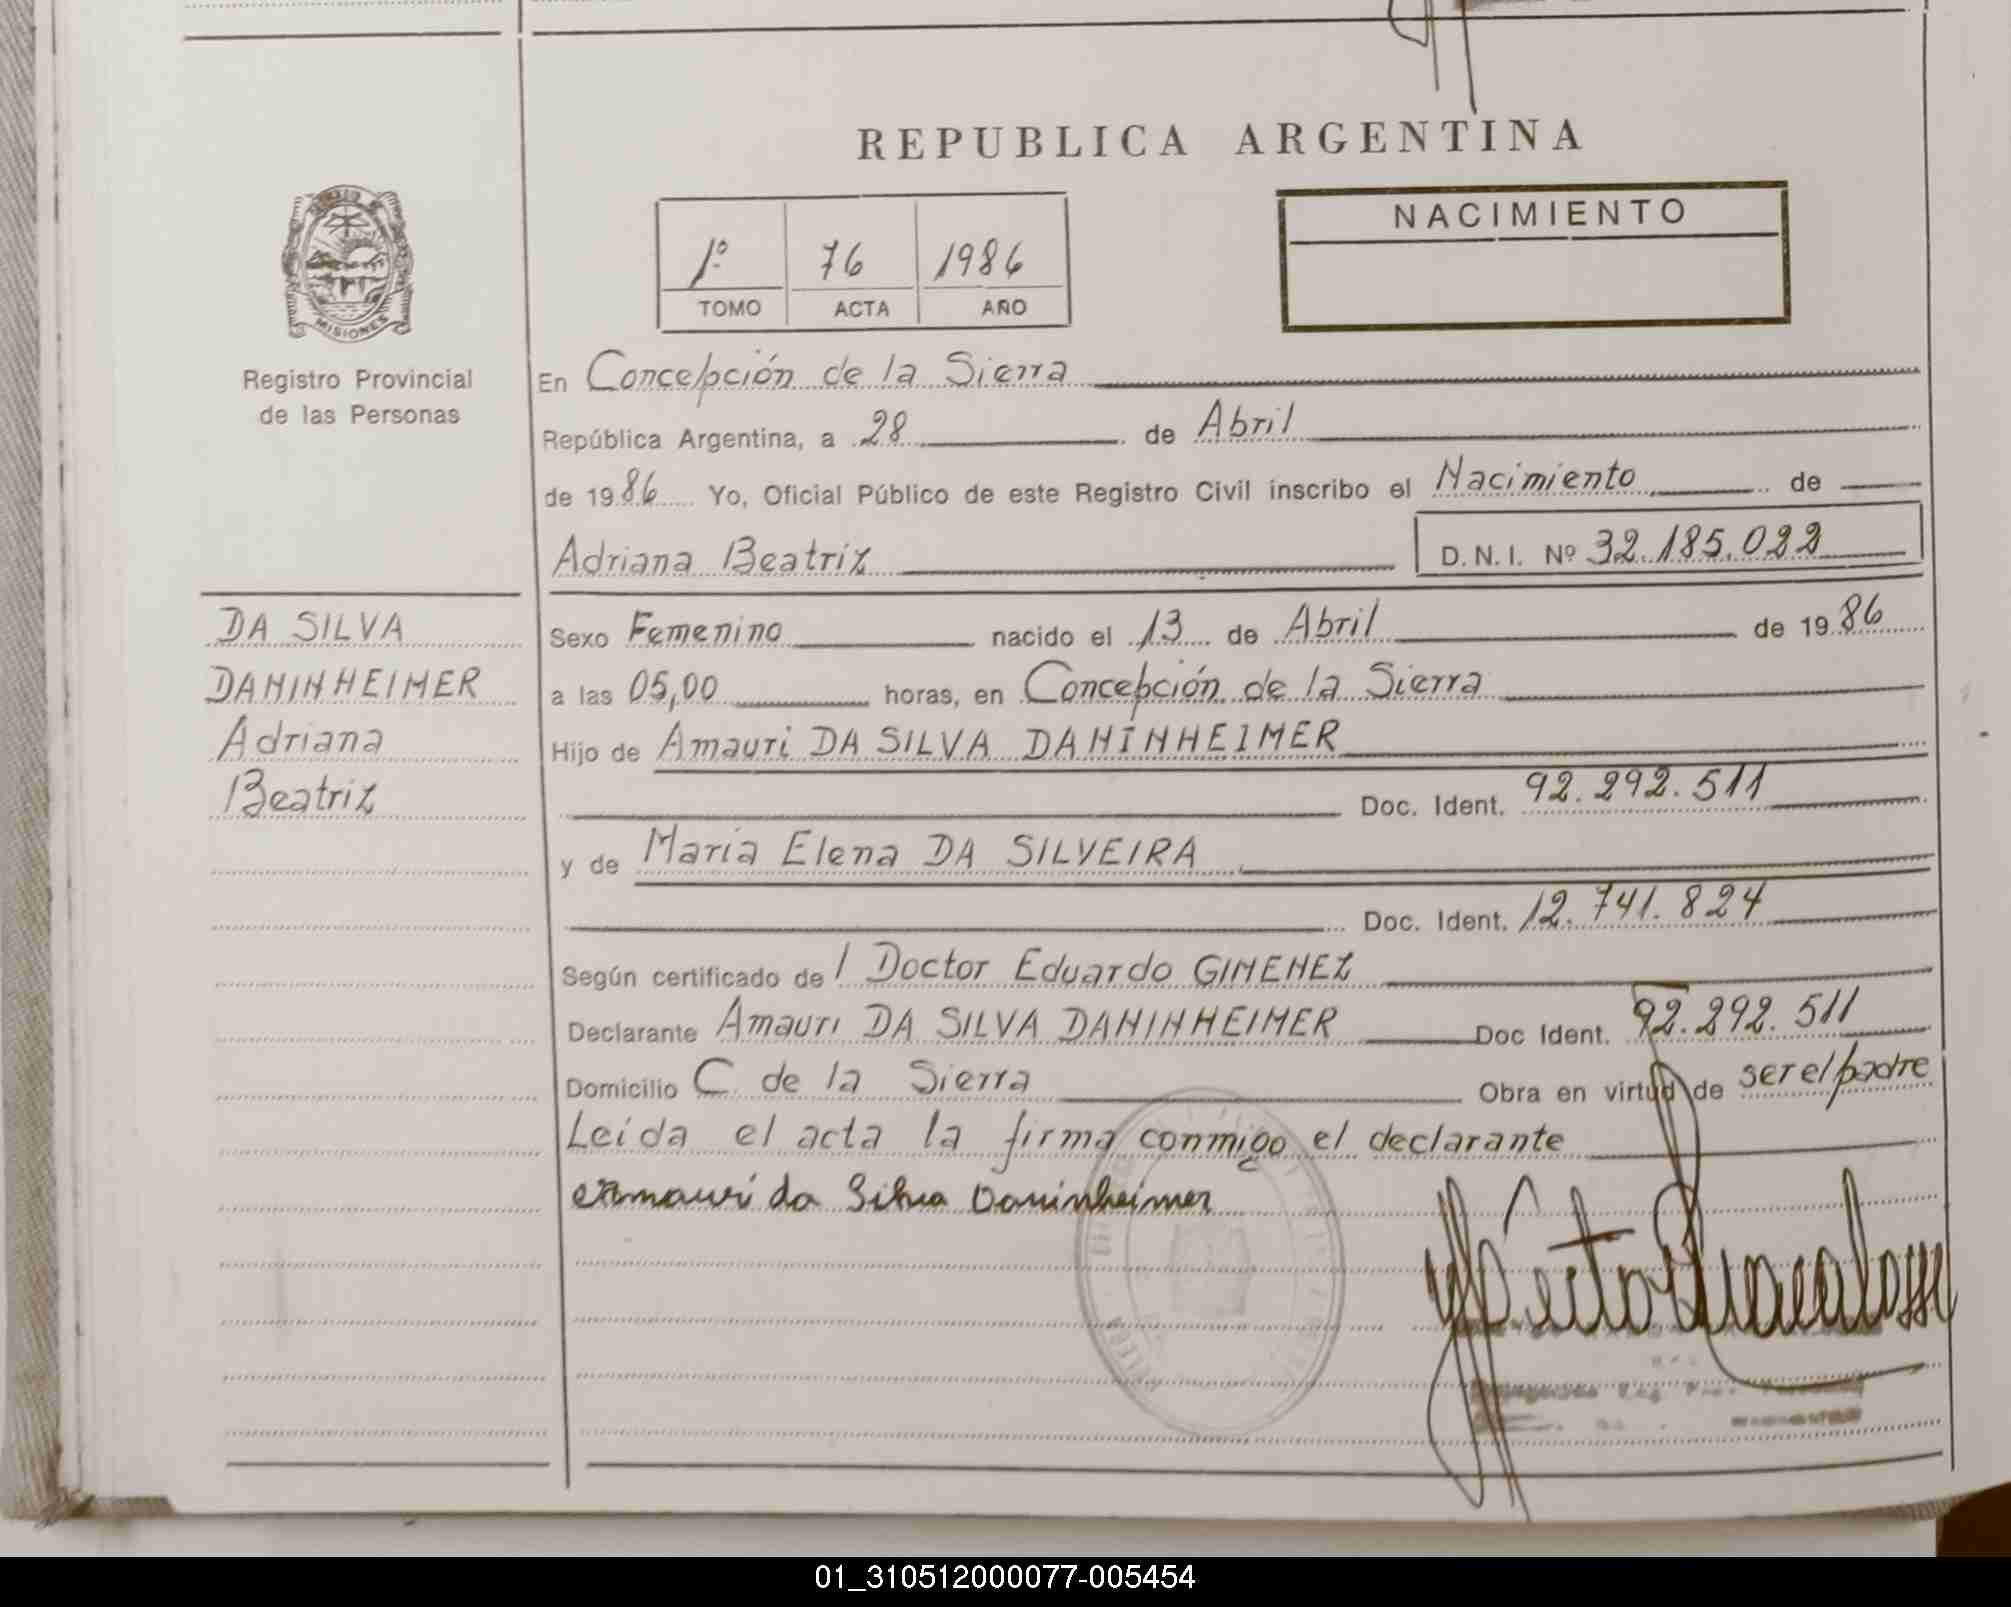 REPUBLICA ARGENTINA
NACIMIENTO
1º 76 1986
TOMO ACTA AÑO
MISIONES
Registro Provincial
de las Personas
En Concepción de la Sierra
República Argentina, a 28 de Abril
de 1986 Yo, Oficial Público de este Registro Civil inscribo el Nacimiento de
Adriana Beatriz D.N.I. Nº 32.185.022
DA SILVA
DANINHEIMER
Adriana
Beatriz
Sexo Femenino nacido el 13 de Abril de 1986
a las 05,00 horas, en Concepción de la Sierra
Hijo de Amauri DA SILVA DANINHEIMER
Doc. Ident. 92.292.511
y de María Elena DA SILVEIRA
Doc. Ident. 12.741.824
Según certificado del Doctor Eduardo GIMENEZ
Declarante Amauri DA SILVA DANINHEIMER Doc Ident. 92.292.511
Domicilio C. de la Sierra Obra en virtud de ser el padre
Leída el acta la firma conmigo el declarante
Amauri da Silva Daninheimer
01_310512000077-005454